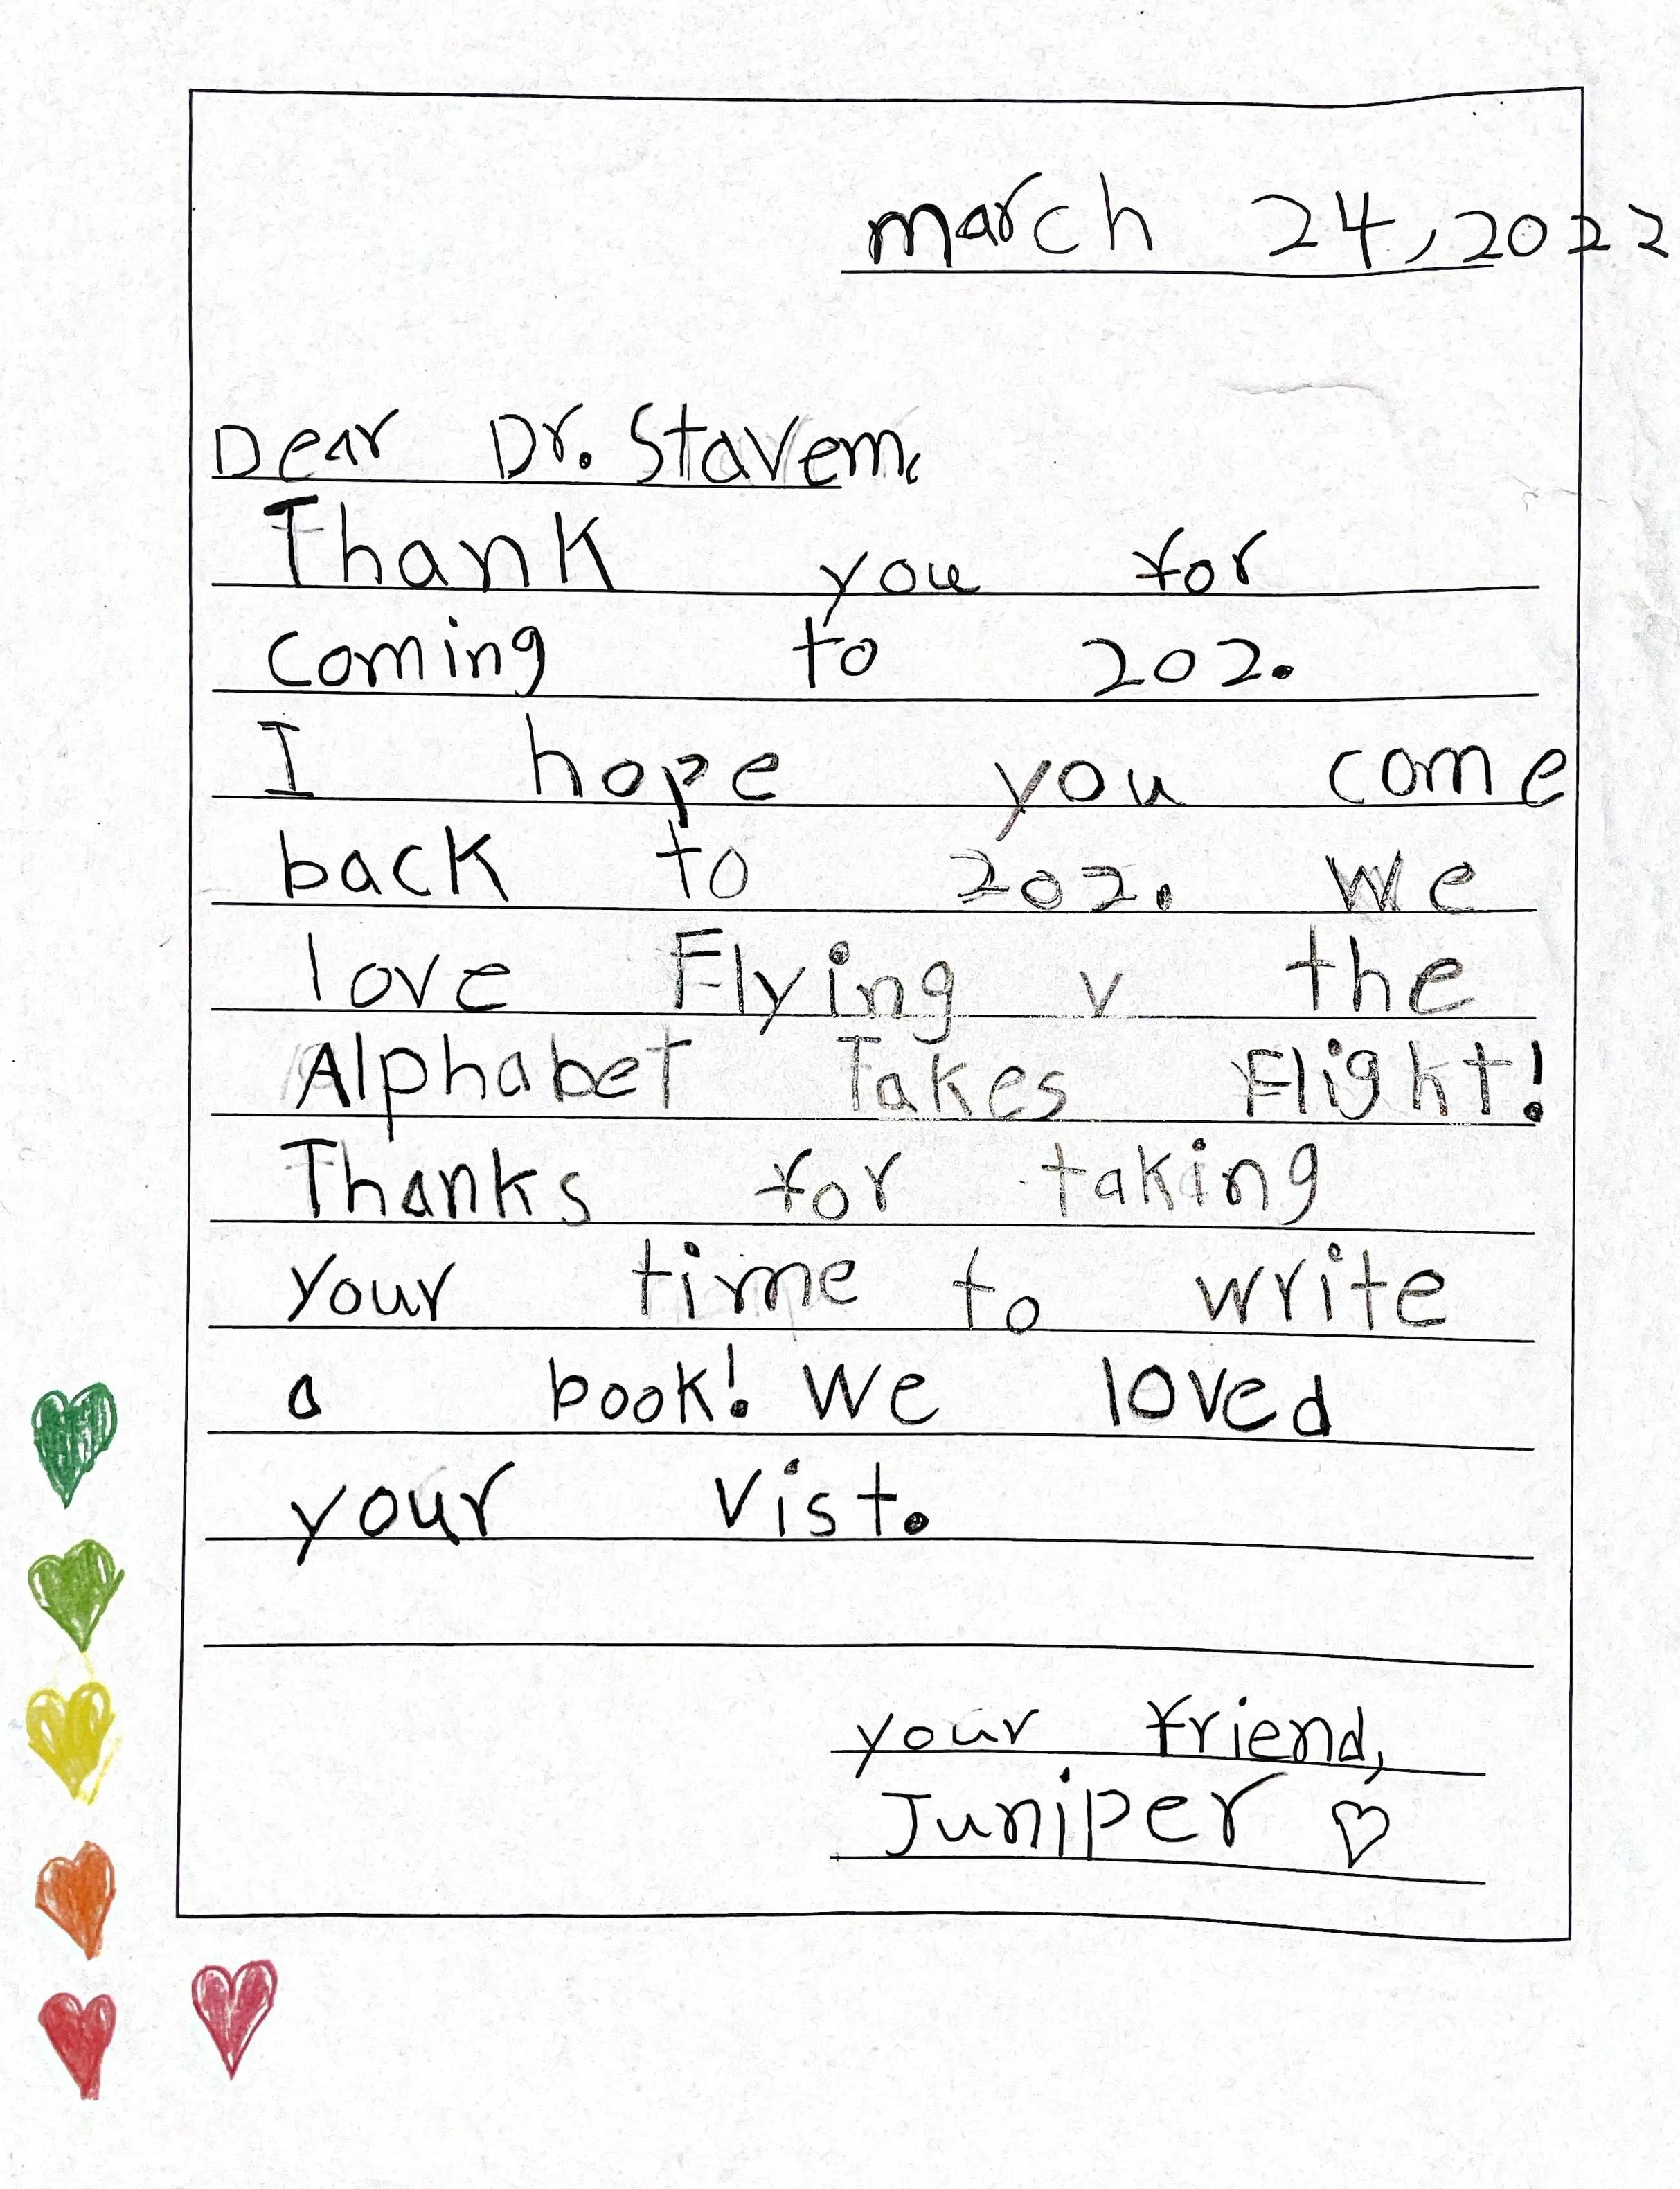 march 24, 2022
Dear Dr. Stavem,
Thank you for
coming to 202.
I hope you come
back to 202. We
love Flying v the
Alphabet Takes Flight!
Thanks for taking
your time to write
a book! We loved
your vist.
your friend,
Juniper